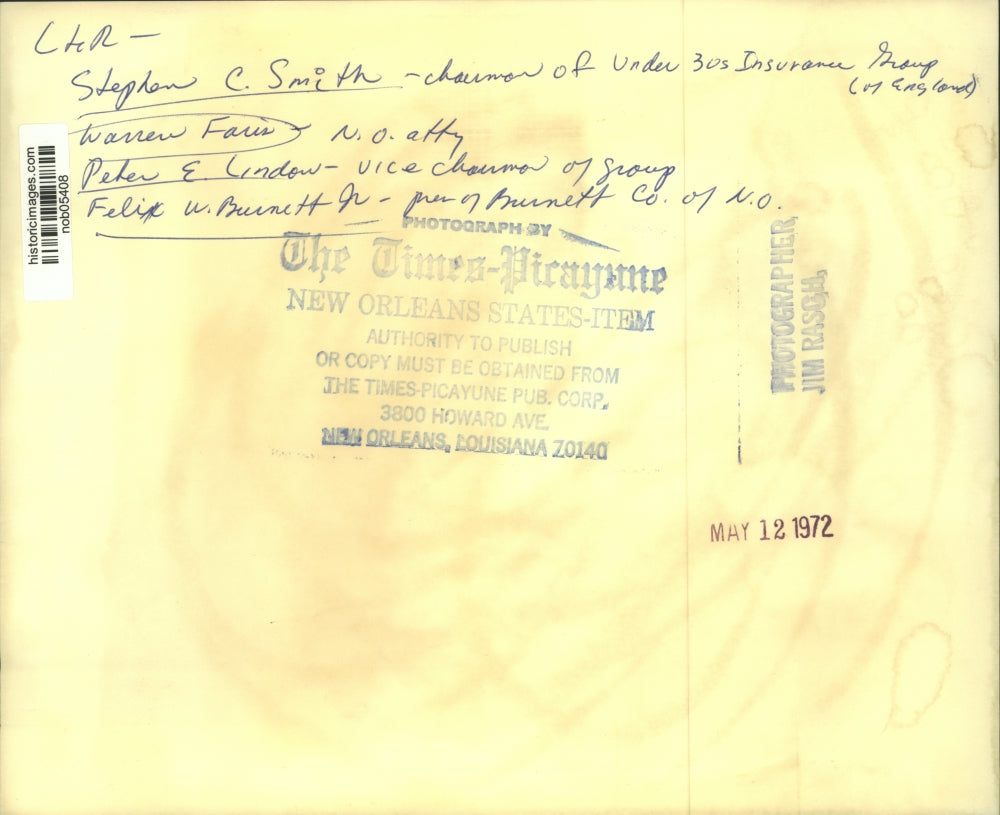 L to R -
Stephen C. Smith - chairman of Under 30s Insurance Group
(of England)
Warren Faris - N.O. atty
Peter E. Lindow - vice chairman of group
Felix W. Burnett Jr - pres of Burnett Co. of N.O.
historicimages.com
nob05408
PHOTOGRAPH BY
The Times-Picayune
NEW ORLEANS STATES-ITEM
AUTHORITY TO PUBLISH
OR COPY MUST BE OBTAINED FROM
THE TIMES-PICAYUNE PUB. CORP.
3800 HOWARD AVE.
NEW ORLEANS, LOUISIANA 70140
PHOTOGRAPHER,
JIM RASCH,
MAY 12 1972